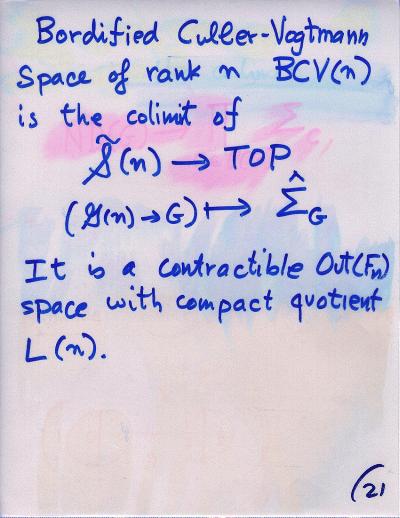 Bordified Culler-Vogtmann
Space of rank n BCV(n)
is the colimit of
S̃(n) → TOP
(S(n) → G) ↦ Σ̂_G
It is a contractible Out(Fn)
space with compact quotient
L(n).
21